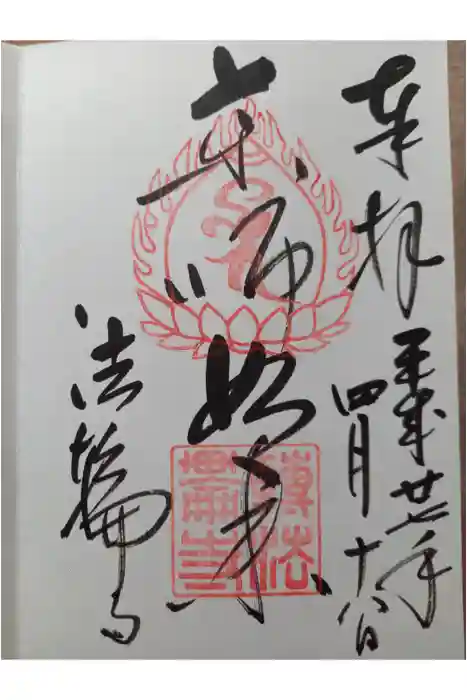 奉拝
平成廿七年
四月十八日
薬師如来
法輪寺